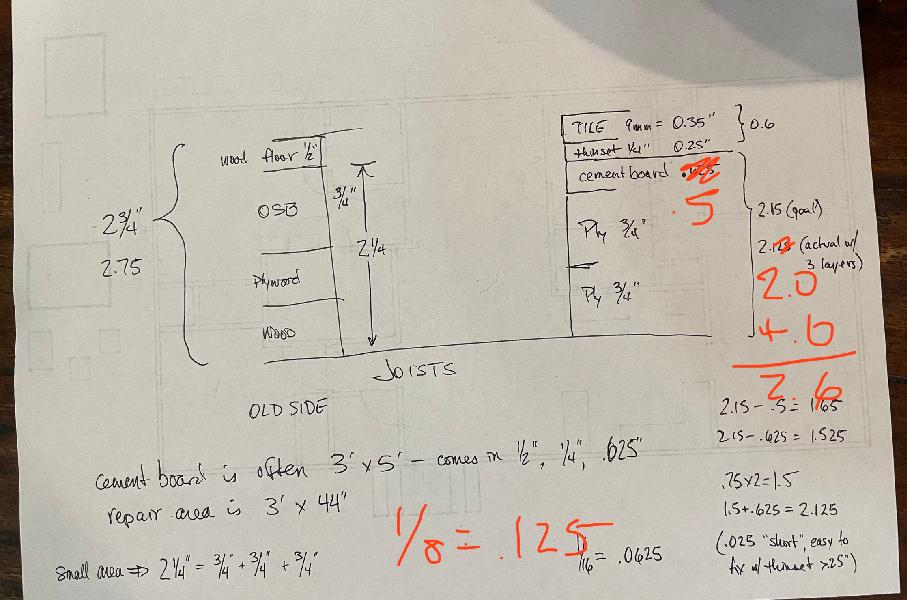 TILE 9mm = 0.35"
thinset 1/4" 0.25"
0.6
cement board
.5
Ply 3/4"
Ply 3/4"
2.15 (goal)
2.125 (actual w/
3 layers)
2.0
+.6
2.6
wood floor 1/2"
OSB
3/4"
2 3/4"
2.75
2 1/4
Plywood
WOOD
JOISTS
OLD SIDE
2.15 - .5 = 1.65
2.15 - .625 = 1.525
.75x2 = 1.5
1.5+.625 = 2.125
(.025 "short", easy to
fix w/ thinset >.25")
cement board is often 3' x 5' - comes in 1/2", 1/4", .625"
repair area is 3' x 44"
1/8 = .125
1/16 = .0625
Small area ⇒ 2 1/4" = 3/4" + 3/4" + 3/4"